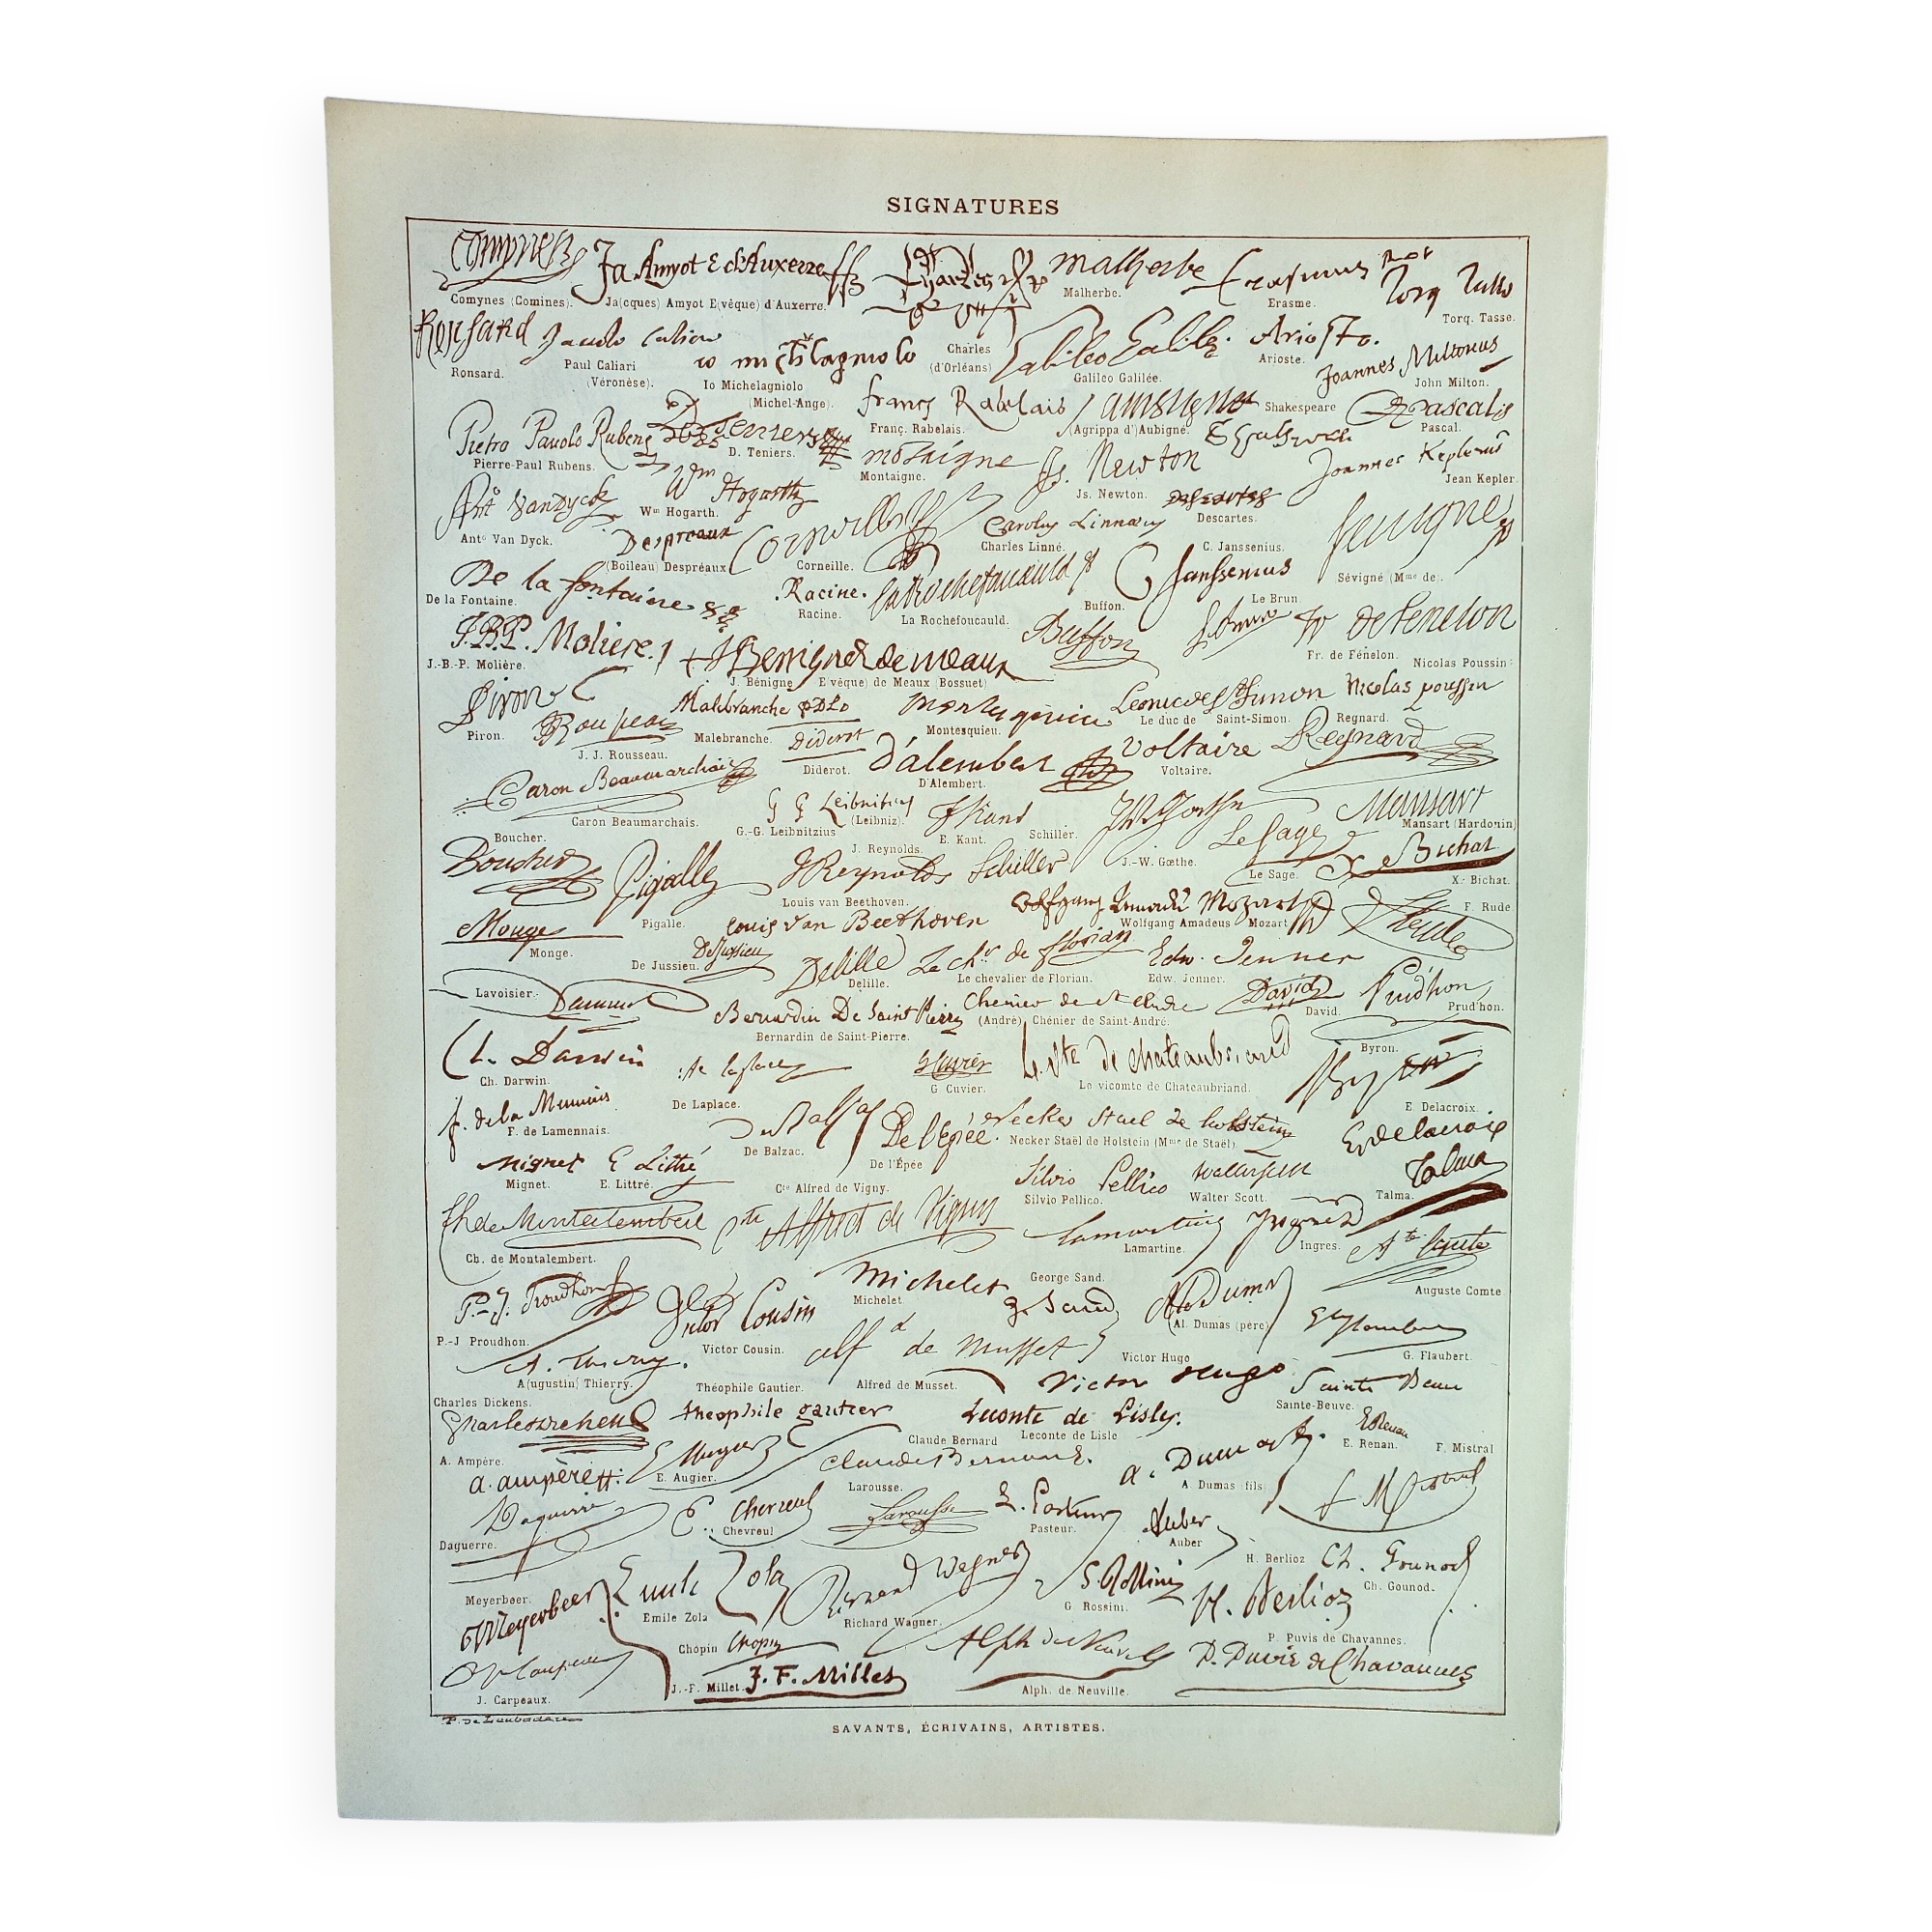 SIGNATURES
Comynes
Ja Amyot E d'Auxerre
Charles
Malherbe
Erasmus Rot
Torq Tasso
Comynes (Comines).
Ja(cques) Amyot E(vêque) d'Auxerre.
Malherbe.
Erasme.
Torq. Tasse.
Ronsard
Paulo Caliari
io michelagniolo
Galileo Galilei.
Ariosto.
Joannes Miltonus
Ronsard.
Paul Caliari
(Véronèse).
Io Michelagniolo
(Michel-Ange).
Charles
(d'Orléans)
Galileo Galilée.
Arioste.
John Milton.
Pietro Pauolo Rubens
Franç Rabelais
Aubigné
Pascalis
Pierre-Paul Rubens.
D. Teniers.
Franç. Rabelais.
(Agrippa d')Aubigné.
Shakespeare
Pascal.
Wm Hogarth
montaigne
Is. Newton
Joannes Keplerus
Wm Hogarth.
Montaigne.
Js. Newton.
Jean Kepler.
Anto Van Dyck
Despreaux
Corneille
Carolus Linnæus
Descartes
Sevigne
Anto Van Dyck.
(Boileau) Despréaux
Corneille.
Charles Linné.
Descartes.
C. Janssenius.
Sévigné (Mme de).
De la fontaine
.Racine.
La Rochefoucauld
C Janssenius
De la Fontaine.
Racine.
La Rochefoucauld.
Buffon.
Le Brun
J.B.P. Moliere.
+ J Benigne E de meaux
Buffon
Fr de Fenelon
J.-B.-P. Molière.
J. Bénigne E(vêque) de Meaux (Bossuet)
Fr. de Fénelon.
Nicolas Poussin
Piron
Rousseau
Malebranche
montesquieu
Le duc de St Simon
Nicolas poussin
Piron.
J. J. Rousseau.
Malebranche.
Montesquieu.
Le duc de Saint-Simon.
Regnard.
Caron Beaumarchais
Diderot
d'alembert
Voltaire
Regnard
Caron Beaumarchais.
Diderot.
D'Alembert.
Voltaire.
G G Leibnitius
I Kant
JW Goethe
Le Sage
Mansart
Boucher.
G.-G. Leibnitzius (Leibniz).
E. Kant.
Schiller.
J.-W. Gœthe.
Le Sage.
Mansart (Hardouin)
Boucher
Pigalle
J Reynolds
Schiller
X Bichat
J. Reynolds.
X. Bichat.
Monge
Louis van Beethoven
Wolfgang Amadè Mozart
Rude
Monge.
Pigalle.
Louis van Beethoven.
Wolfgang Amadeus Mozart
F. Rude.
De Jussieu
Delille
Le chr de florian
Edw. Jenner
De Jussieu.
Delille.
Le chevalier de Florian.
Edw. Jenner.
Lavoisier.
Bernardin De Saint Pierre
Chenier de st andre
David
Prudhon
Bernardin de Saint-Pierre.
(André) Chénier de Saint-André.
David.
Prud'hon.
Ch. Darwin
De laplace
G Cuvier
Le Vte de chateaubriand
Byron
Ch. Darwin.
De Laplace.
G Cuvier.
Le vicomte de Chateaubriand.
Byron.
F. de la Mennais
De Balzac
De l'épée.
Necker Stael de holstein
E. Delacroix
F. de Lamennais.
De Balzac.
De l'Épée
Necker Staël de Holstein (Mme de Staël)
E. Delacroix.
Mignet
E Littré
Silvio Pellico
Walter Scott
Talma
Mignet.
E. Littré.
Cte Alfred de Vigny.
Silvio Pellico.
Walter Scott.
Talma.
Ch de Montalembert
Cte Alfred de Vigny
Lamartine
Ingres
Ate Comte
Ch. de Montalembert.
Lamartine.
Ingres.
Auguste Comte
P.-J. Proudhon
Victor Cousin
Michelet
G. Sand
Al Dumas
G Flaubert
P.-J Proudhon.
Victor Cousin.
Michelet.
George Sand.
(Al. Dumas (père)
G. Flaubert.
A. Thierry.
alfd de Musset
Victor Hugo
Sainte Beuve
A(ugustin) Thierry.
Théophile Gautier.
Alfred de Musset.
Victor Hugo
Sainte-Beuve.
Charles Dickens
théophile gautier
Leconte de Lisle.
E Renan
Charles Dickens.
Claude Bernard
Leconte de Lisle
E. Renan.
F. Mistral
a. ampère
E Augier
Claude Bernard.
A. Dumas f.
F Mistral
A. Ampère.
E. Augier.
Larousse.
A. Dumas fils
Daguerre
E. Chevreul
Larousse
L. Pasteur
Auber
Daguerre.
Chevreul
Pasteur.
Auber
Meyerbeer
Emile Zola
Richard Wagner
G. Rossini
H. Berlioz
Ch. Gounod
Meyerbeer.
Emile Zola
Richard Wagner.
G. Rossini.
H. Berlioz
Ch. Gounod.
Chopin
Chopin
Alph de Neuville
P. Puvis de Chavannes
P. Puvis de Chavannes.
J.-F. Millet
J. F. Millet
J. Carpeaux.
Alph. de Neuville.
SAVANTS, ÉCRIVAINS, ARTISTES.